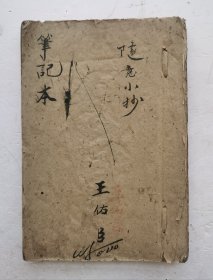 隨意小抄
筆記本
王佑